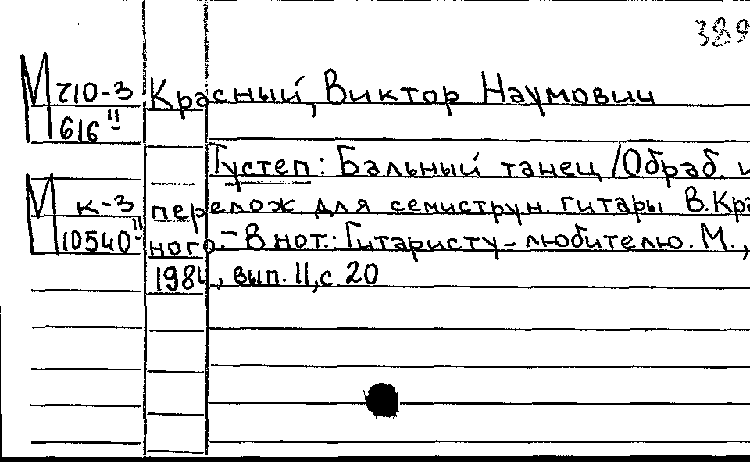 389
М 710-3
616 II
Красный, Виктор Наумович
Тустеп: Бальный танец /Обраб. и
М к-3
10540-II
перелож для семиструн. гитары В.Крас
ного.- В нот.: Гитаристу-любителю. М.,
1984, вып. 11, с. 20